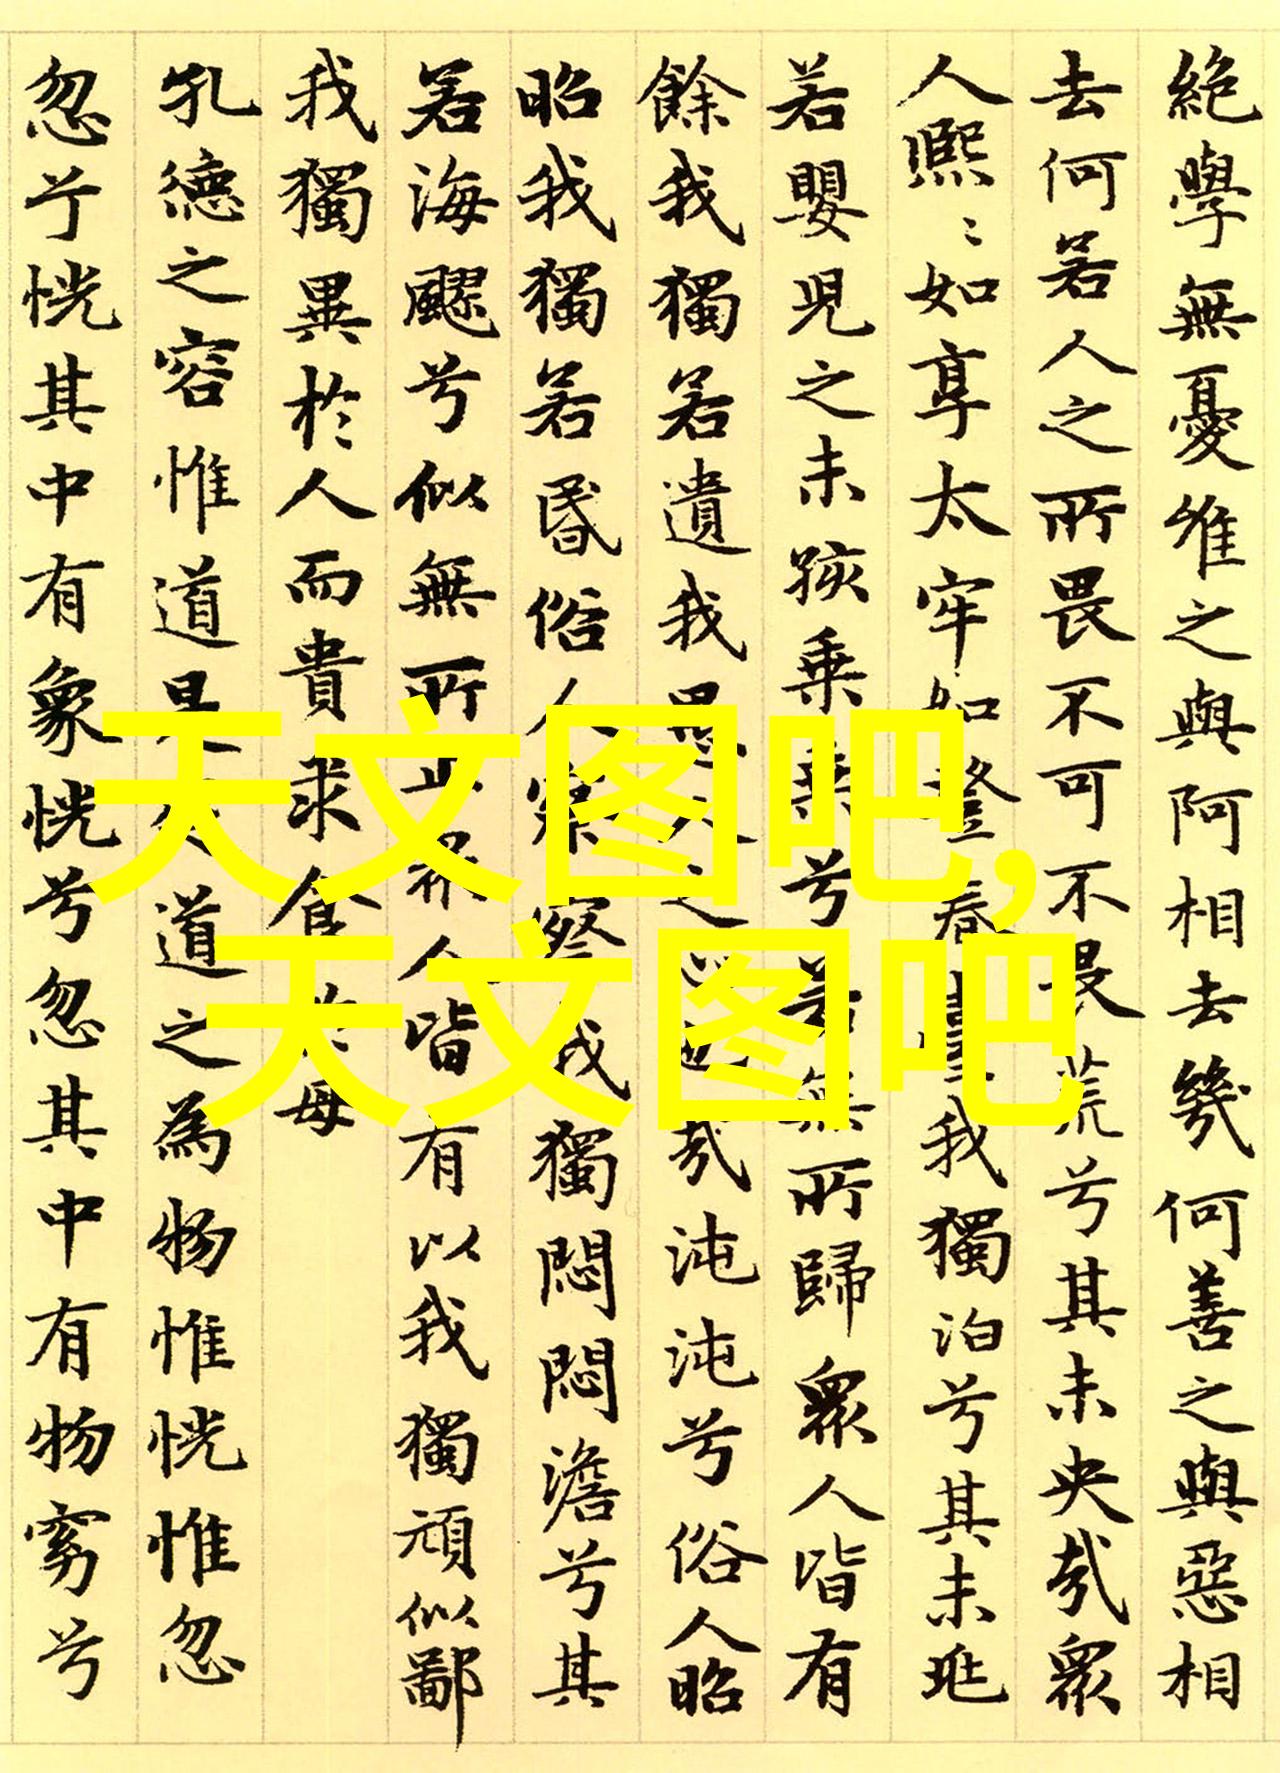 絶學無憂唯之與阿相去幾何善之與惡相
去何若人之所畏不可不畏荒兮其未央哉眾
人熙〻如享太牢如登春臺我獨泊兮其未兆
若嬰兒之未孩乗乗兮若無所歸眾人皆有
餘我獨若遺我愚人之心也哉沌沌兮俗人昭
昭我獨若昏俗人察察我獨悶悶澹兮其
若海飂兮似無所止眾人皆有以我獨頑似鄙
我獨異於人而貴求食於母
孔德之容惟道是從道之為物惟恍惟忽
忽兮恍其中有象恍兮忽其中有物窈兮
天文图吧,
天文图吧